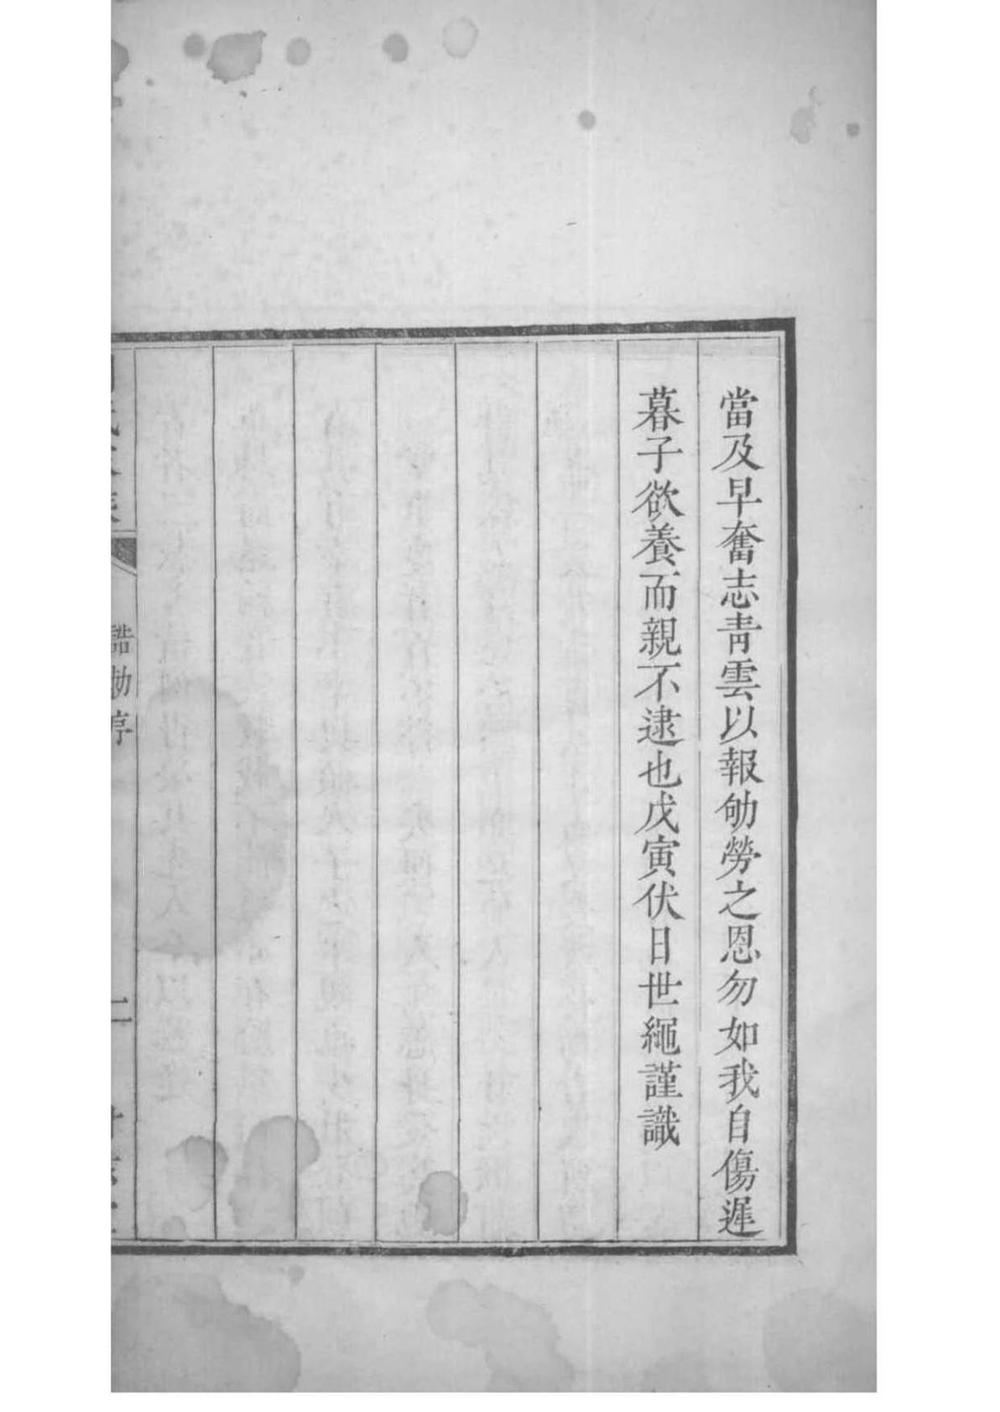 當及早奮志青雲以報劬勞之恩勿如我自傷遲
暮子欲養而親不逮也戊寅伏日世繩謹識
誥勅序
二